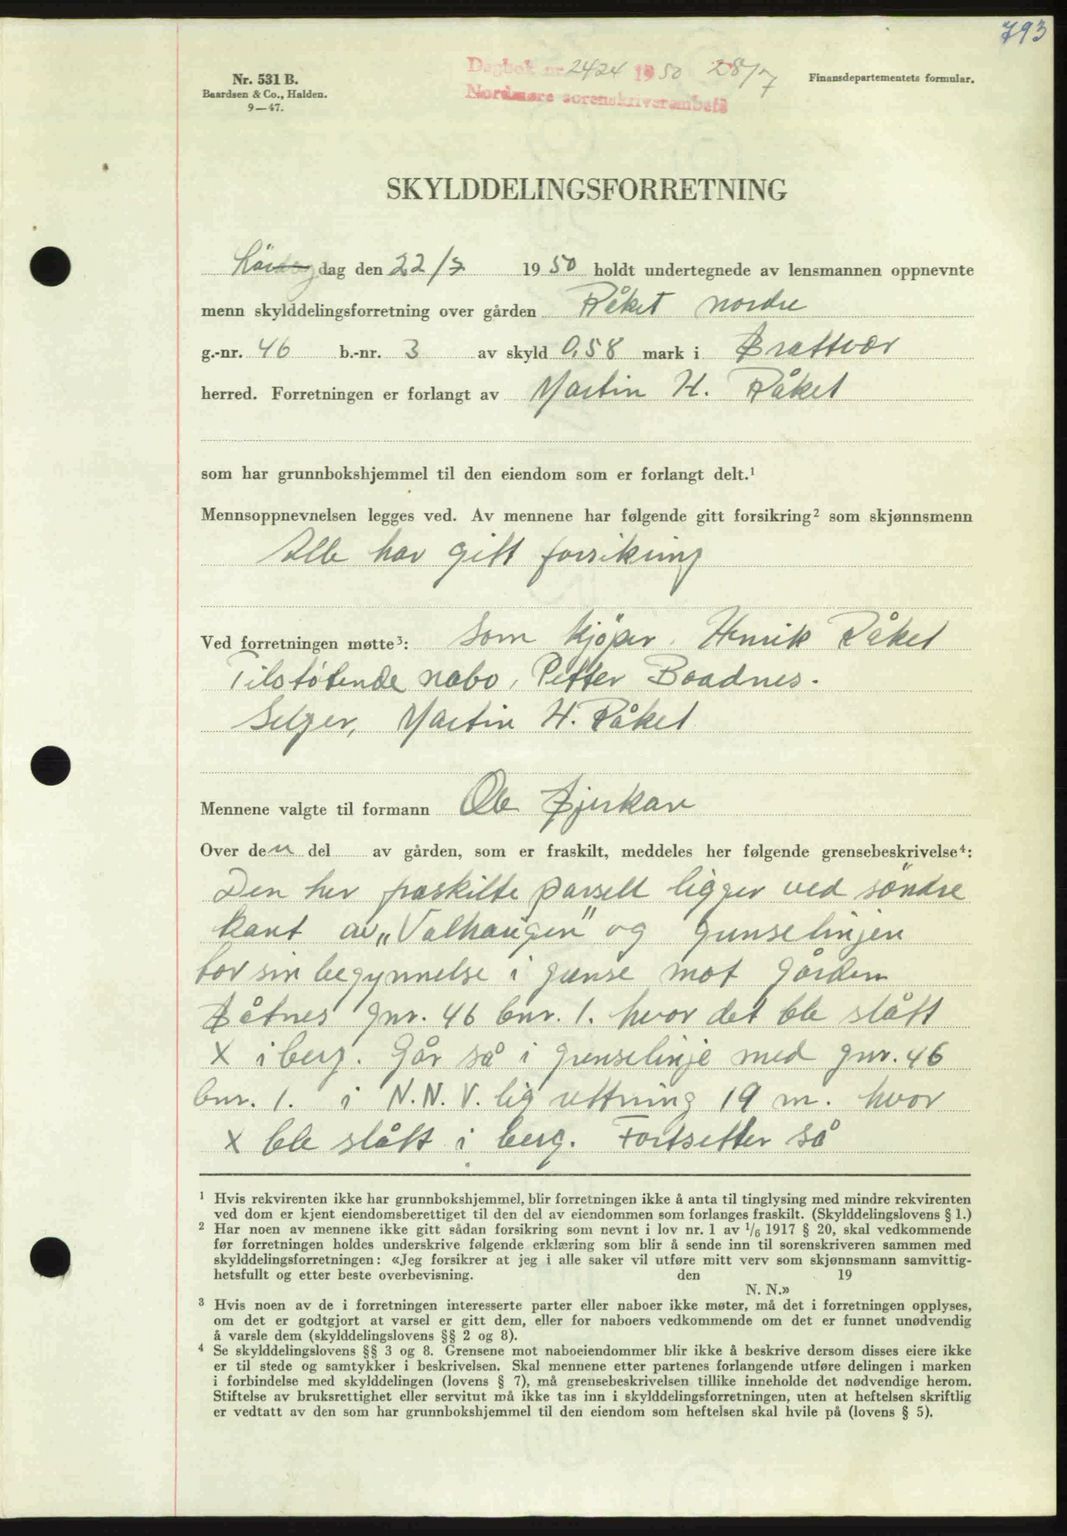 793
Nr. 531 B.
Baardsen & Co., Halden.
9—47.
Dagbok nr 2424 1950 28/7
Nordmøre sorenskriverembede
Finansdepartementets formular.
SKYLDDELINGSFORRETNING
Lördag dag den 22/7 1950 holdt undertegnede av lensmannen oppnevnte
menn skylddelingsforretning over gården Råket nordre
g.-nr. 46 b.-nr. 3 av skyld 0,58 mark i Brattvær
herred. Forretningen er forlangt av Martin H. Råket
som har grunnbokshjemmel til den eiendom som er forlangt delt.¹
Mennsoppnevnelsen legges ved. Av mennene har følgende gitt forsikring² som skjønnsmenn
Alle har gitt forsikring
Ved forretningen møtte³: Som kjöper, Henrik Råket
Tilstötende nabo, Petter Baadnes.
Selger, Martin H. Råket
Mennene valgte til formann Ole Bjerkan
Over den del av gården, som er fraskilt, meddeles her følgende grensebeskrivelse⁴:
Den her fraskilte parsell ligger ved söndre
kant av „Valhaugen" og grenselinjen
tar sin begynnelse i grense mot gården
Båtnes gnr. 46 bnr. 1. hvor det ble slått
X i berg. Går så i grenselinje med gnr. 46
bnr. 1. i N.N.V. lig rettning 19 m. hvor
X ble slått i berg. Fortsetter så
¹ Hvis rekvirenten ikke har grunnbokshjemmel, blir forretningen ikke å anta til tinglysing med mindre rekvirenten
ved dom er kjent eiendomsberettiget til den del av eiendommen som forlanges fraskilt. (Skylddelingslovens § 1.)
² Har noen av mennene ikke gitt sådan forsikring som nevnt i lov nr. 1 av 1/6 1917 § 20, skal vedkommende
før forretningen holdes underskrive følgende erklæring som blir å sende inn til sorenskriveren sammen med
skylddelingsforretningen: «Jeg forsikrer at jeg i alle saker vil utføre mitt verv som skjønnsmann samvittig-
hetsfullt og etter beste overbevisning. den 19
N. N.»
³ Hvis noen av de i forretningen interesserte parter eller naboer ikke møter, må det i forretningen opplyses,
om det er godtgjort at varsel er gitt dem, eller for naboers vedkommende om det er funnet unødvendig
å varsle dem (skylddelingslovens §§ 2 og 8).
⁴ Se skylddelingslovens §§ 3 og 8. Grensene mot naboeiendommer blir ikke å beskrive dersom disses eiere ikke
er til stede og samtykker i beskrivelsen. Skal mennene etter partenes forlangende utføre delingen i marken
i forbindelse med skylddelingen (lovens § 7), må grensebeskrivelsen tillike inneholde det nødvendige herom.
Stiftelse av bruksrettighet eller servitut må ikke tas inn i skylddelingsforretningen, uten at heftelsen skriftlig
er vedtatt av den som har grunnbokshjemmel til den eiendom som heftelsen skal hvile på (lovens § 5).